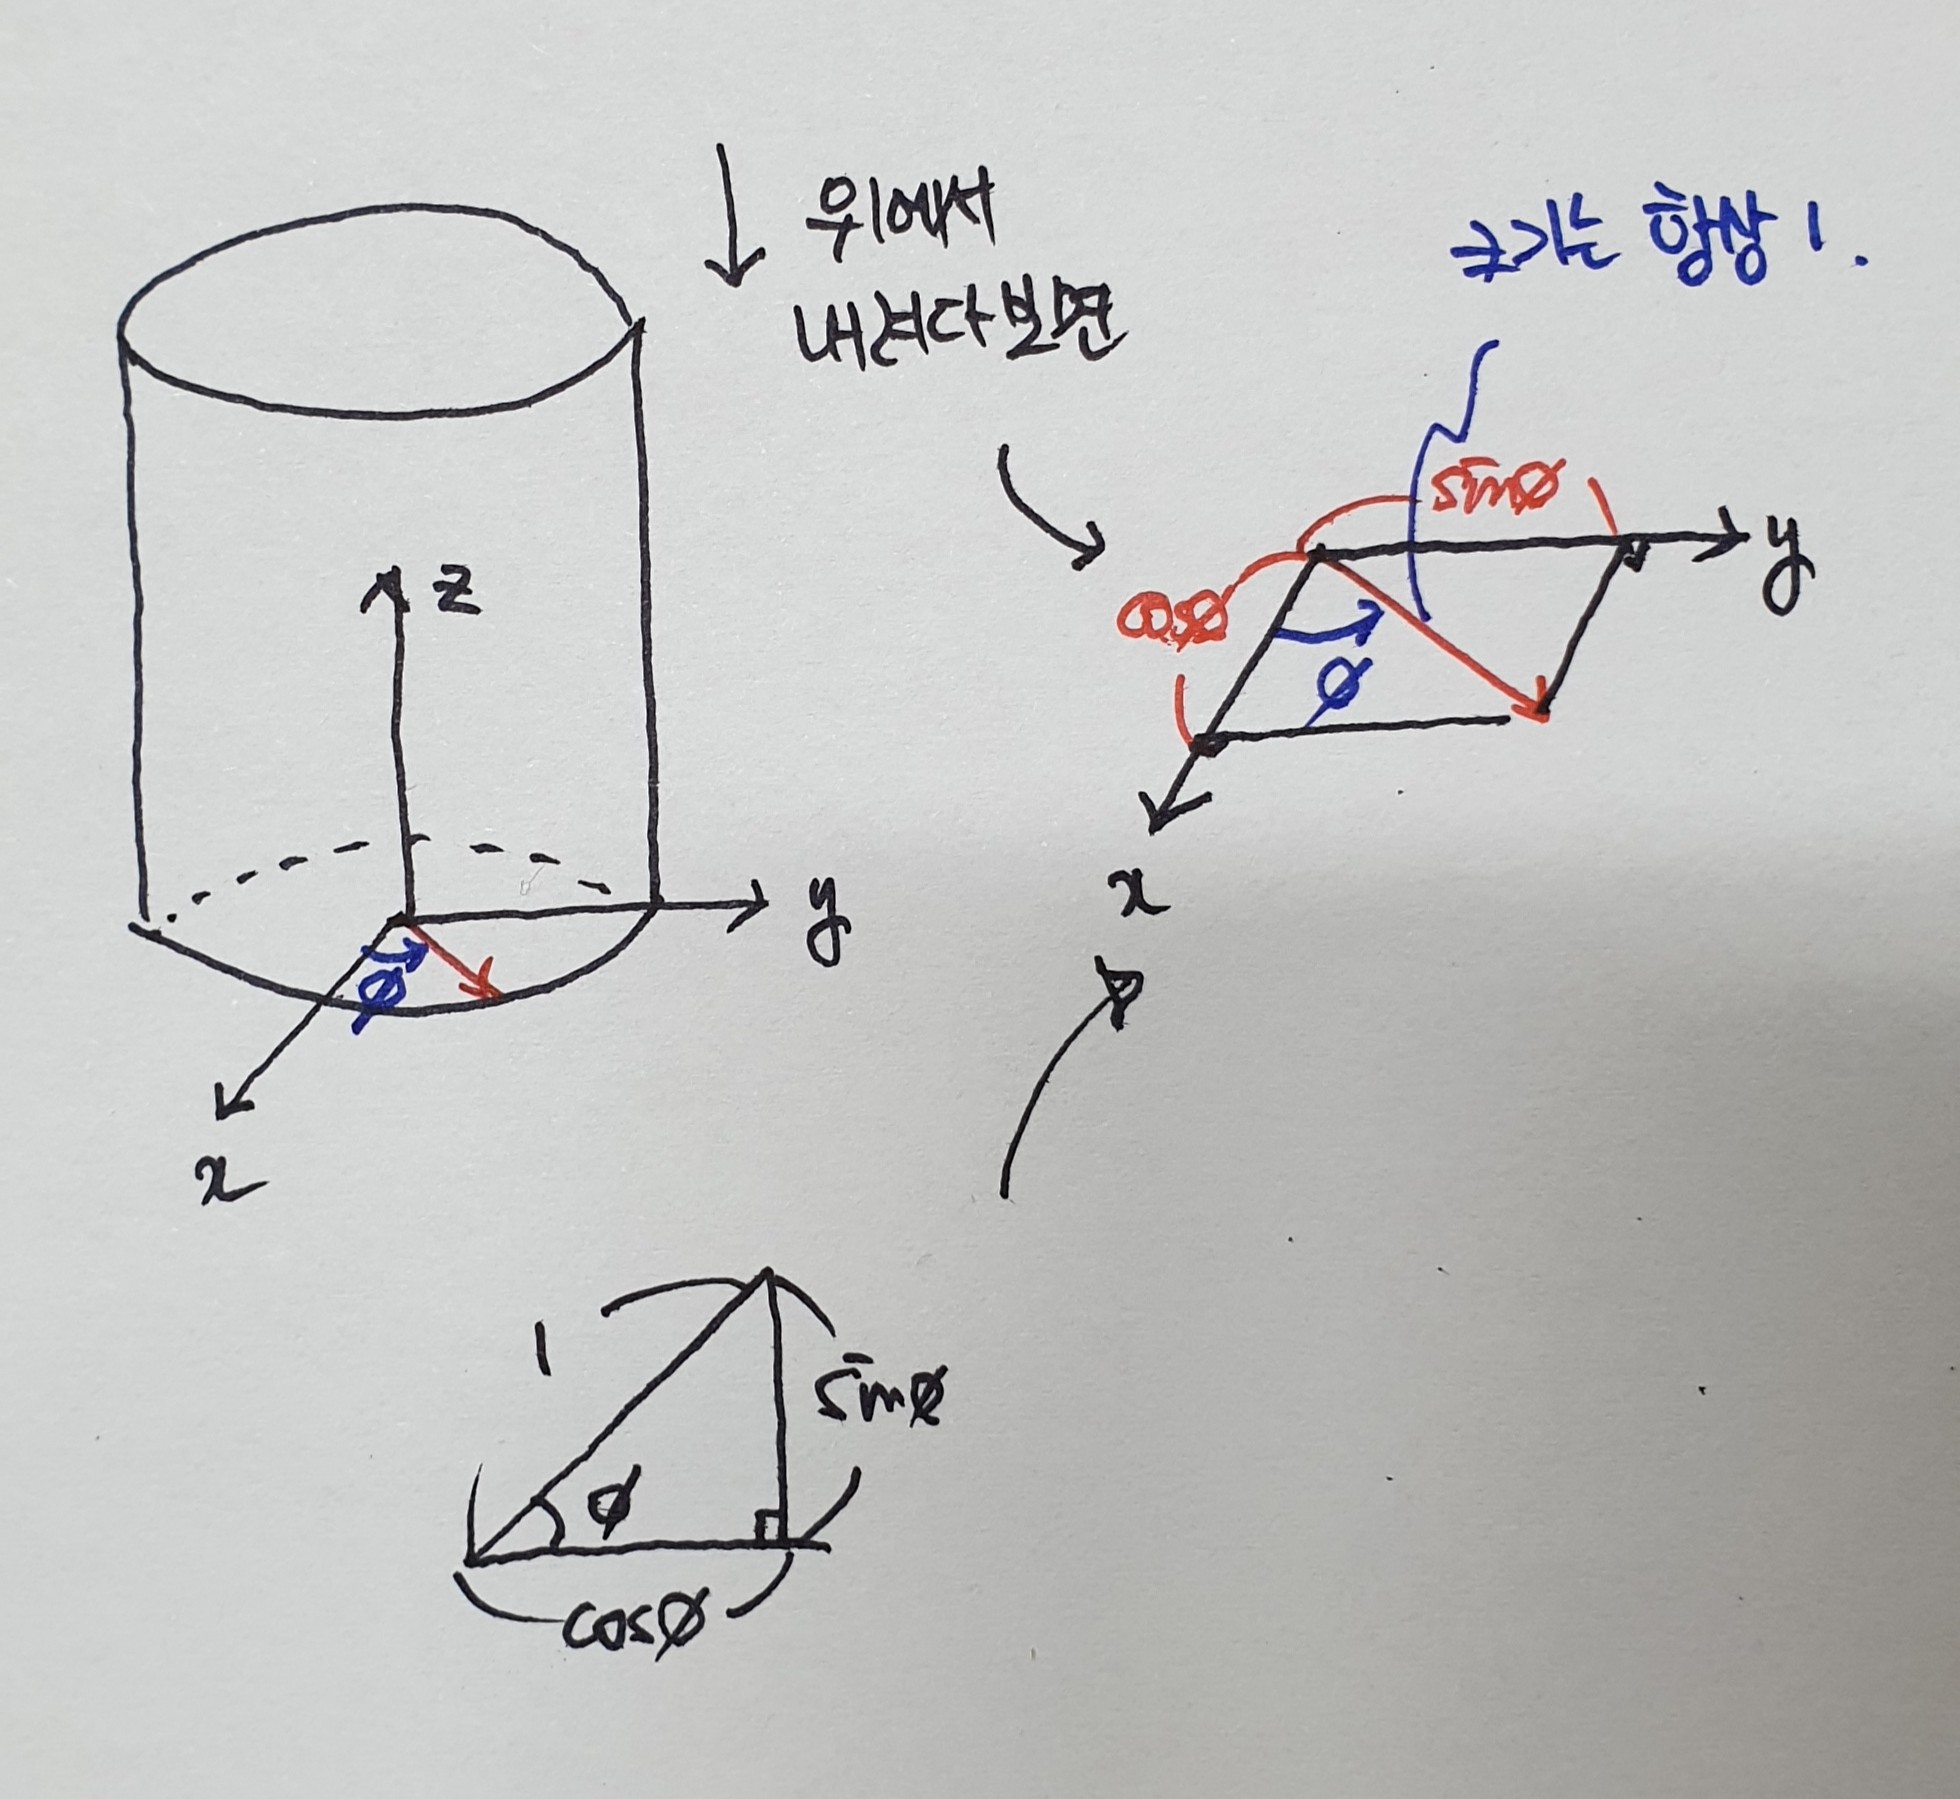 위에서
내려다보면
크기는 항상 1.
z
y
ϕ
x
sinϕ
cosϕ
ϕ
y
x
1
sinϕ
ϕ
cosϕ